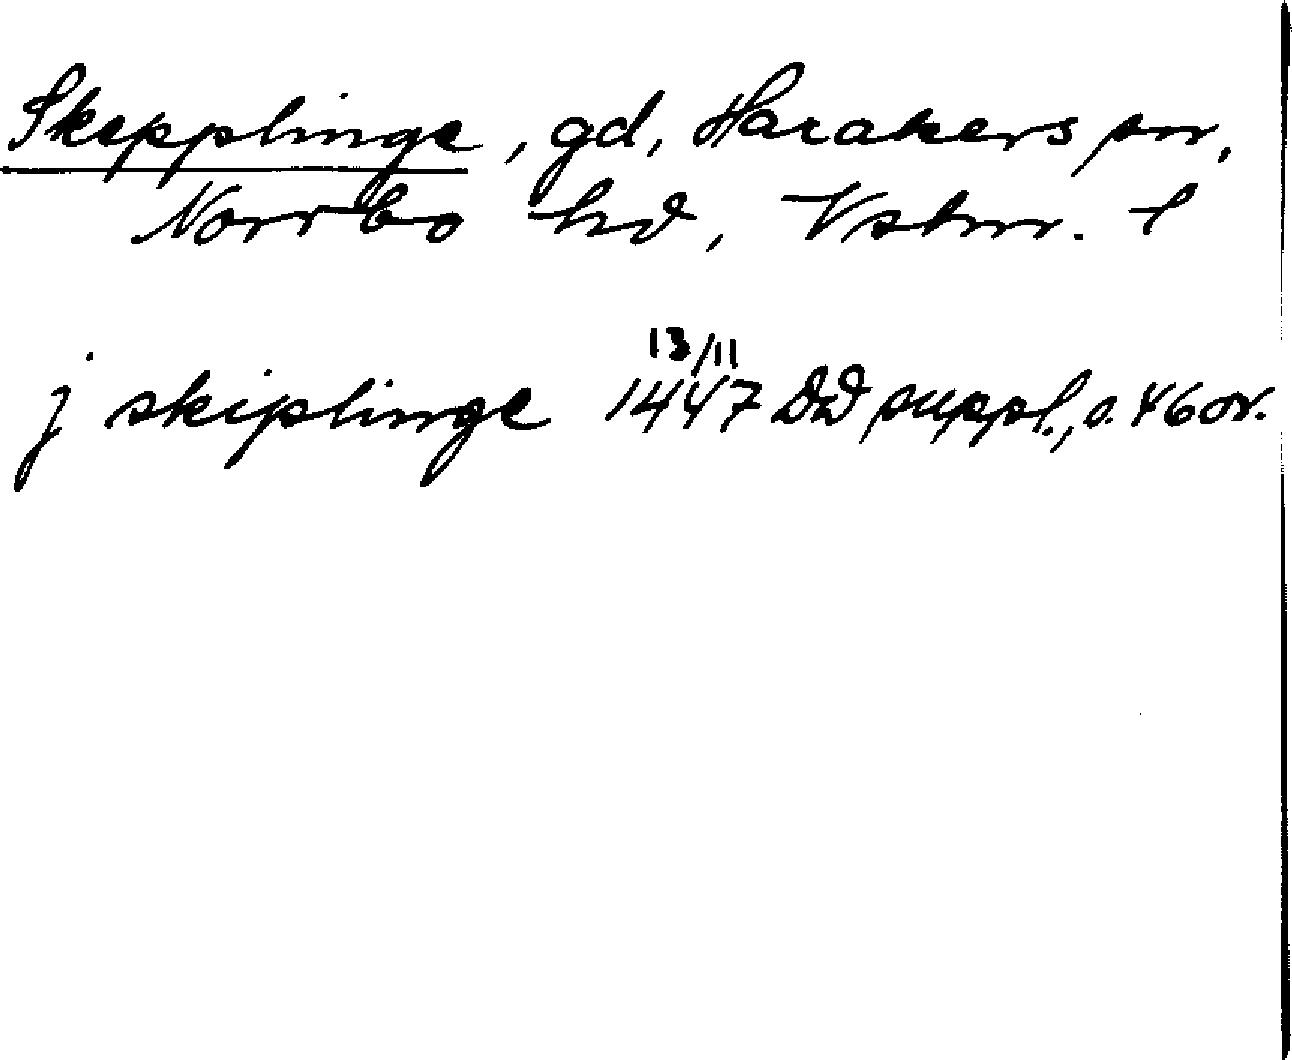 Skepplinge, gd, Harakers sn,
Norrbo hd, Vstm. l
j skiplinge 1447 13/11 DD suppl., s. 46 or.